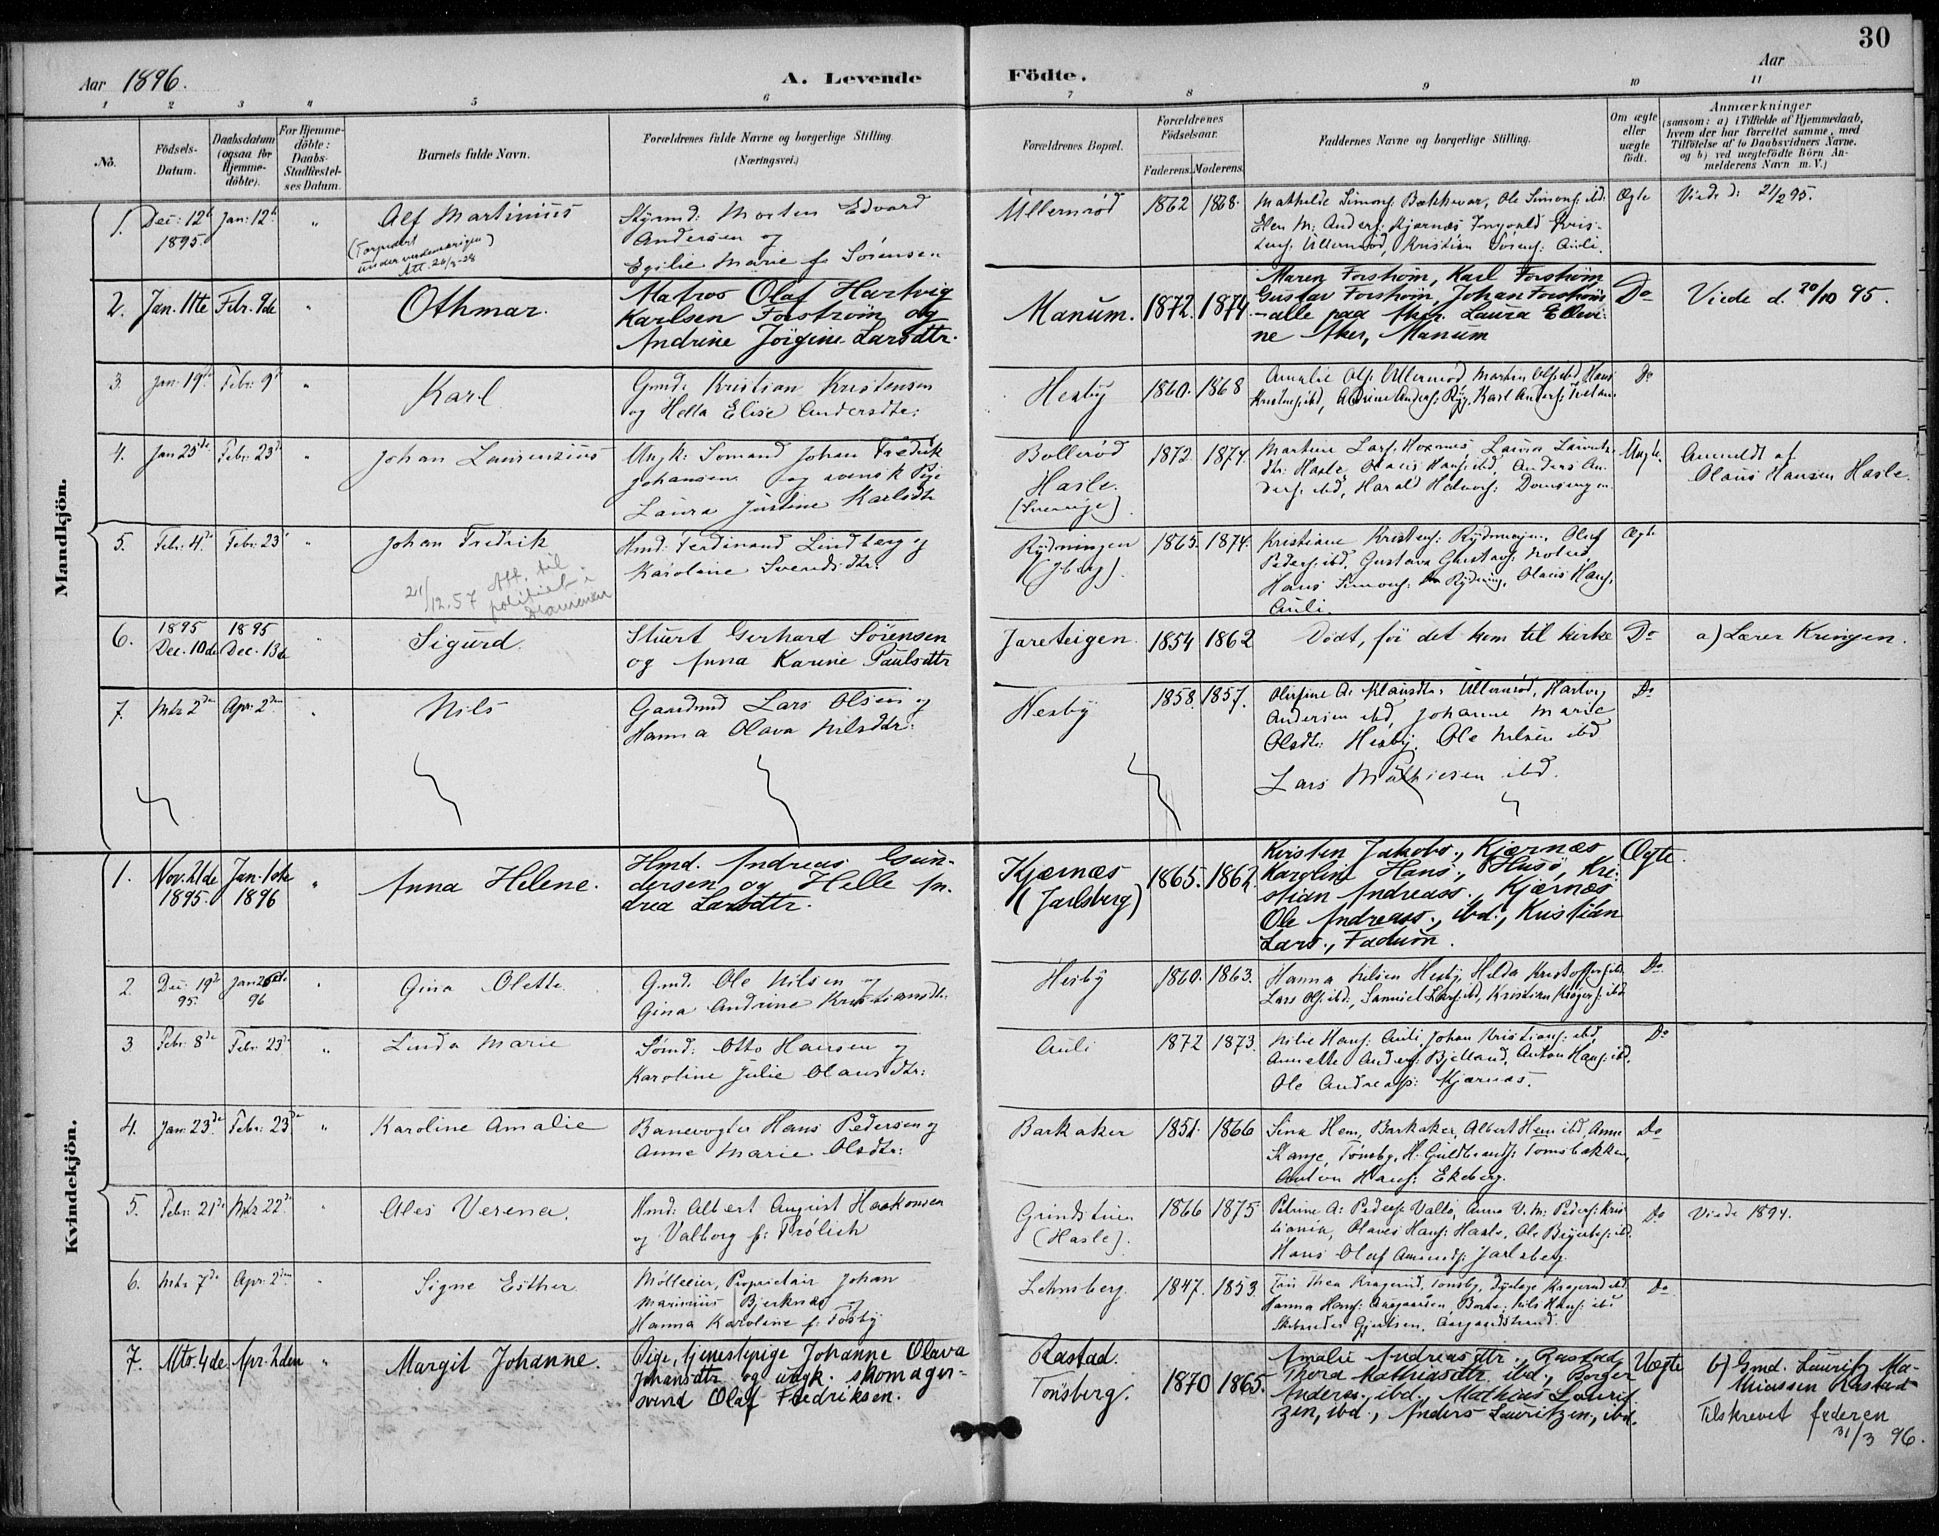 30
Aar 1896.
A. Levende Födte.
Aar
1 2 3 4 5 6 7 8 9 10 11
No.
Födsels-Datum.
Daabsdatum (ogsaa for Hjemme-döbte).
For Hjemme-döbte: Daabs-Stadfæstel-ses Datum.
Barnets fulde Navn.
Forældrenes fulde Navne og borgerlige Stilling. (Næringsvei.)
Forældrenes Bopæl.
Forældrenes Födselsaar.
Faderens. Moderens.
Faddernes Navne og borgerlige Stilling.
Om ægte eller uægte födt.
Anmærkninger (saasom: a) i Tilfælde af Hjemmedaab, hvem der har forrettet samme, med Tilföielse af to Daabsvidners Navne. og b) ved uægtefödte Börn An-melderens Navn m. V.)
Mandkjön.
1. Dec: 12te 1895 Jan: 12te " Alf Martinius
(Torpedert under verdenskrigen)
Styrmd: Morten Edvard
Andersen og
Egilie Marie f. Sörensen
Ullernrød 1862 1868.
Mathilde Simons: Bakkevar, Ole Simons: ibd.
Kristian Sörens: Auli.
Ægte Viede d: 21/2 95.
2. Jan. 11te Febr. 9de " Othmar.
Matros Olaf Hartvig
Karlsen Forström og
Andrine Jörgine Larsdtr.
Manum. 1872. 1874.
Maren Forström, Karl Forström,
Gustav Forström, Johan Forström
- alle paa Aker. Laura Ellevi-
ne Aker, Manum
Do Viede d. 20/10 95.
3. Jan. 19de Febr: 9de " Karl
Gmd: Kristian Kristensen
og Hella Elise Andersdtr:
Hesby 1860. 1868
Amalie Ols: Ullernrød, Martin Ols: ibd, Hans
Kristens: ibd, Karl Anders:
Do
4. Jan 25de Febr: 23de " Johan Laurenzius
Ungk: Sömand Johan Fredrik
Johansen og svensk Pige
Laura Justine Karlsdtr
Bollerød
Hasle.
(Sverrige).
1872. 1874.
Martine Lars: Laura
dtr: Hasle, Olaus Hans: ibd, Anders An-
ders: ibd, Harald
Uægte. Anmeldt af
Olaus Hansen Hasle.
5. Febr: 4de Febr: 23de " Johan Fredrik
21/12.57 Att. til
politiet i
Drammen
Hmd: Ferdinand Lindberg og
Karoline Svendsdtr:
Rydningen
(Jberg).
1865. 1874.
Kristiane Kristens: Rydningen, Oluf
Peders: ibd, Gustava Gustavs:
Hans Simons: Rydning, Olaus Hans:
Auli.
Ægte
6. 1895 Dec. 10de 1895 Dec. 13de " Sigurd.
Stuert Gerhard Sörensen
og Anna Karine Paulsdtr
Jareteigen. 1854 1862
Dödt, för det kom til kirke
Do a) Lærer Kringen.
7. Mts 2den Apr. 2den " Nils
Gaardmd Lars Olsen og
Hanna Olava Nilsdtr:
Hesby 1858. 1857.
Olefine A. Klausdtr: Ullernrød, Hartvig
Andersen ibd, Johanne Marie
Olsdtr: Hesby, Ole Nilsen ibd
Lars Mathiesen ibd.
Do
Kvindekjön.
1. Nov. 21de 1895. Jan. 1ste 1896 " Anna Helene.
Hmd. Andreas Gun-
dersen og Helle An-
drea Larsdtr.
Kjærnæs
(Jarlsberg)
1865. 1862.
Kirsten Jakobs., Kjærnæs
Karoline Hans., Husö, Kri-
stian Andreass., Kjærnæs
Ole Andreass., ibd., Kristian
Lars., Fadum.
Ægte.
2. Dec: 19de 95. Jan 26de 96 " Gina Olette
Gmd: Ole Nilsen og
Gina Andrine Kristiansdtr.
Hesby 1860. 1863.
Hanna Nilsen Hesby, Helda Kristoffers: ibd
Lars Ols: ibd, Samuel Lars: ibd, Kristian
Do
3 Febr: 8de Febr: 23de " Linda Marie
Sömd: Otto Hansen og
Karoline Julie Olausdtr:
Auli 1872 1873.
Hans: Auli, Johan Kristians: ibd
Annette Anders: Bjelland, Anton Hans: ibd.
Ole Andreass: Kjærnæs.
Do
4. Jan: 23de Febr: 23de " Karoline Amalie
Banevogter Hans Pedersen og
Anne Marie Olsdtr:
Barkaker 1851. 1866
Sina Hem, Barkaker, Albert Hem ibd, Anne
Stange, Tönsbg, H. Guldbrands: Tomsbakken,
Anton Hans: Ekeberg.
Do
5. Febr: 21de Mts 22de " Ales Verena.
Hmd: Albert August Haakonsen
og Valborg f: Frölich
Grindstuen
(Hasle).
1866 1875
Petrine A: Peders: Vallö, Anna V. M: Peders: Kris-
tiania, Olaves Hans: Hasle, Ole Birgerthes: ibd.
Hans Olaf Amunds: Jarlsberg.
Do Viede 1894.
6. Mts 7de Apr: 2den " Signe Esther
Möller, Proprietair Johan
Marinius Bjerknæs og
Hanna Karoline f: Fösby
Lehnsberg. 1847. 1853.
Thea Kragerud, Tönsbg, Kragerud ibd
Hanna Hans: Borre, Nils Hans: ibd
Skibsreder Gjertsen, Aasgaardstrand.
Do
7. Mts. 4de. Apr. 2den " Margit Johanne.
Pige, tjenestepige Johanne Olava
Johansdtr og ungk. skomager-
svend Olaf Fredriksen.
Rastad.
Tönsberg.
1870 1865.
Amalie Andreasdtr., Rastad,
Thora Mathiasdtr. ibd., Borger
Anders. ibd., Mathias Laurit-
zen, ibd., Anders Lauritzen, ibd.
Uægte b) Gmd. Lauritz Ma-
thiassen Rastad
Tilskrevet faderen
31/3 96.